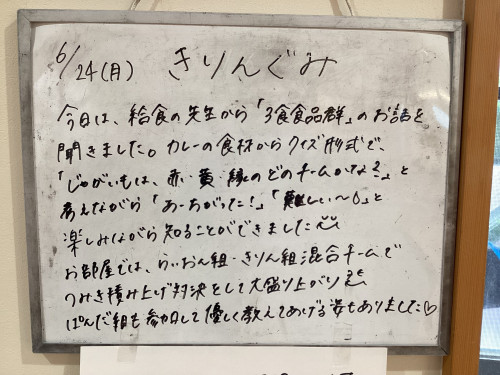 6/24(月) きりんぐみ
今日は、給食の先生から「3食食品群」のお話を
聞きました。カレーの食材からクイズ形式で、
「じゃがいもは、赤・黄・緑のどのチームかな?」と
考えながら「あーちがった!」「難しい〜!」と
楽しみながら知ることができました
お部屋では、らいおん組・きりん組混合チームで
つみき積み上げ対決として大盛り上がり
ぱんだ組も参加して優しく教えてあげる姿もありました♡